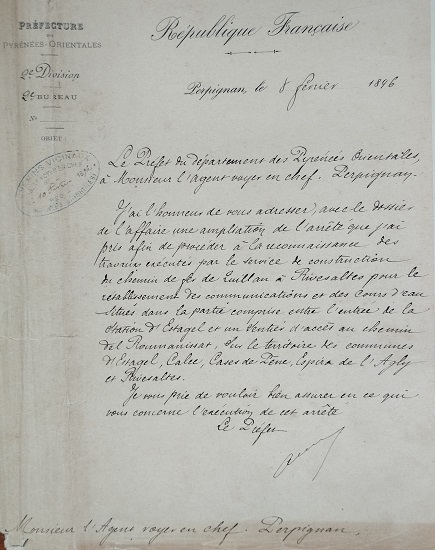 PRÉFECTURE
DES
PYRÉNÉES-ORIENTALES
2e Division
2e BUREAU
N°
OBJET:
République Française
Perpignan, le 8 février 1896
Le Préfet du département des Pyrénées Orientales,
à Monsieur l'Agent voyer en chef. Perpignan
J'ai l'honneur de vous adresser, avec le dossier
de l'affaire une ampliation de l'arrêté que j'ai
pris afin de procéder à la reconnaissance des
travaux exécutés par le service de construction
du chemin de fer de Quillan à Rivesaltes pour le
retablissement des communications et des cours d'eau
situés dans la partie comprise entre l'entrée de la
station d'Estagel et un sentier d'accès au chemin
del Roumanissat, sur le territoire des communes
d'Estagel, Calce, Cases de Pène, Espira de l'Agly
et Rivesaltes.
Je vous prie de vouloir bien assurer en ce qui
vous concerne l'exécution de cet arrêté
Le Préfet
Monsieur l'Agent voyer en chef. Perpignan.